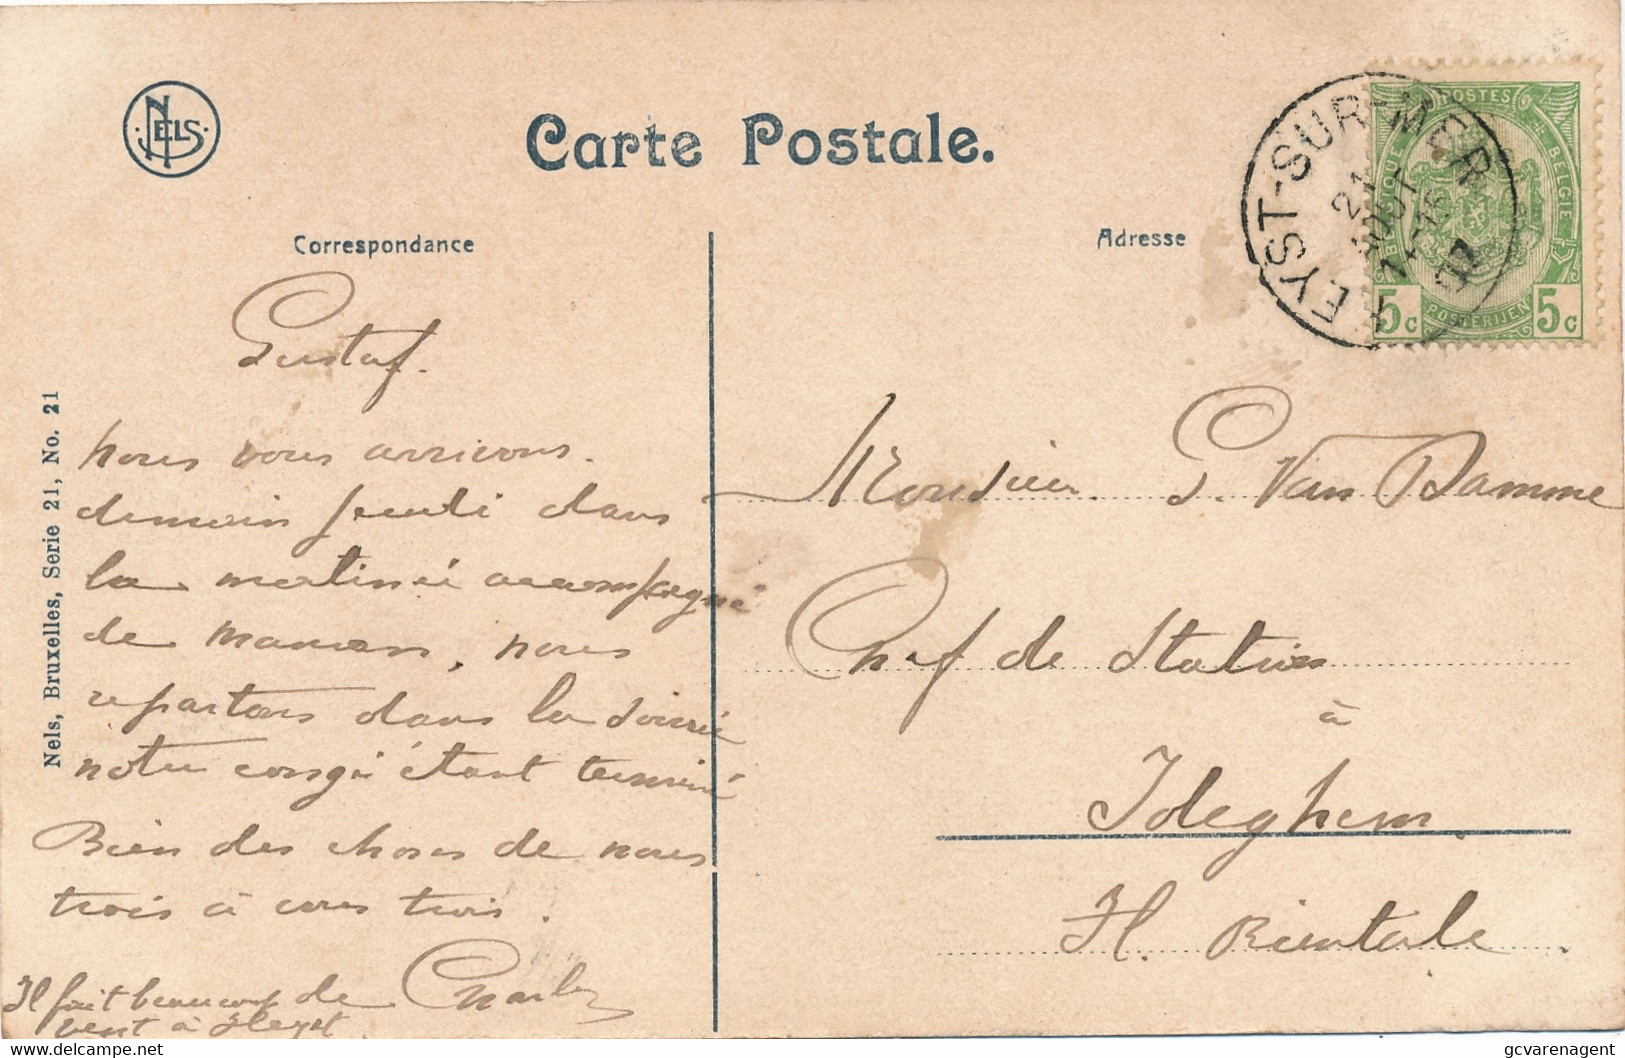 NELS
Carte Postale.
Correspondance
Adresse
HEYST-SUR-MER
21
AOUT
07
POSTES
BELGIQUE
BELGIE
POSTERIJEN
5c 5c
Gustaf.
Nous vous arrivons.
demain jeudi dans
la matinée accompagné
de maman, nous
repartons dans la soirée
notre congé étant terminé
Bien des choses de nous
trois à vous trois.
Charles
Il fait beaucoup de
vent à Heyst
Monsieur G. Van Damme
Chef de Station
à
Ideghem.
Fl. Orientale.
Nels, Bruxelles, Serie 21, No. 21
delcampe.net
gcvarenagent